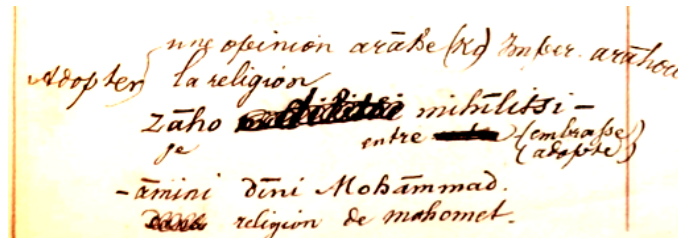 une opinion arāhe (ko) Imper. arāhou
Adopter
la religion
zāho mihīlitsi -
je entre (embrasse
(adopte)
- āmini dīni Mohāmmad.
religion de mahomet.